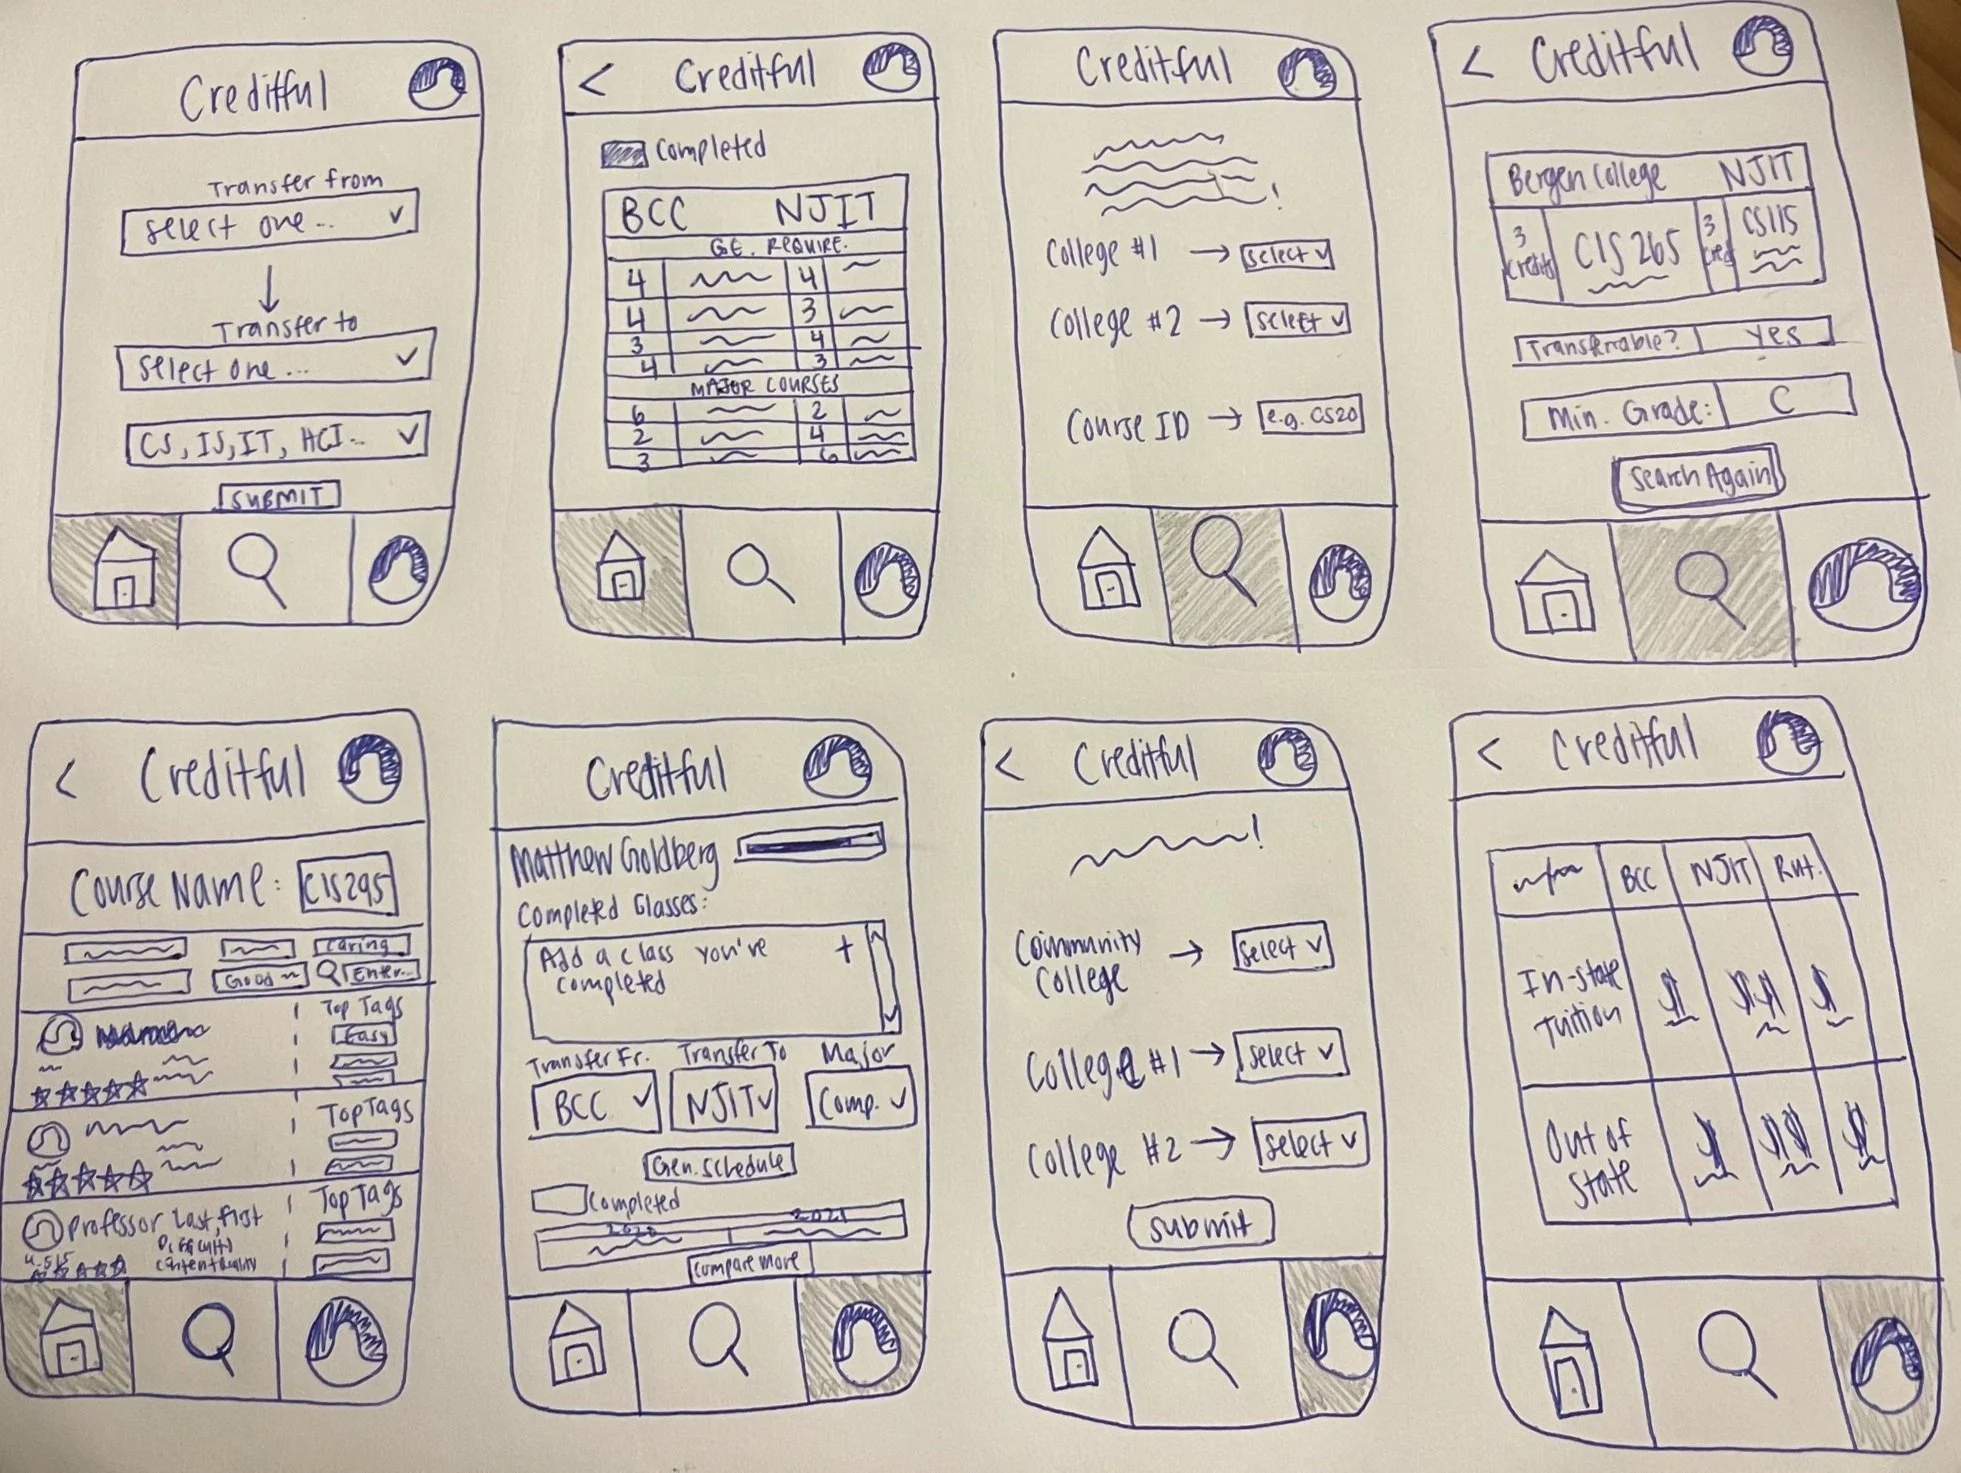 Creditful
Transfer from
Select one...
Transfer to
Select one...
CS, IS, IT, HCI...
SUBMIT
< Creditful
Completed
BCC NJIT
GE. REQUIRE.
4 4
4 3
3 4
4 3
MAJOR COURSES
6 2
2 4
3 6
Creditful
!
College #1 → Select
College #2 → Select
Course ID → e.g. CS20
< Creditful
Bergen College NJIT
3 Credits CIS 265 3 Cred CS115
Transferrable? Yes
Min. Grade: C
Search Again
< Creditful
Course Name: CIS295
Caring
Good Enter..
Top Tags
Easy
Top Tags
Top Tags
Professor Last, First
Difficulty
4.5/5 Content Quality
Creditful
Matthew Goldberg
Completed Classes:
Add a class you've +
completed
Transfer Fr. Transfer To Major
BCC NJIT Comp.
Gen. Schedule
Completed
2020 2021
Compare more
< Creditful
!
Community
College → Select
College #1 → Select
College #2 → Select
Submit
< Creditful
BCC NJIT Rut.
In-state
Tuition
Out of
State